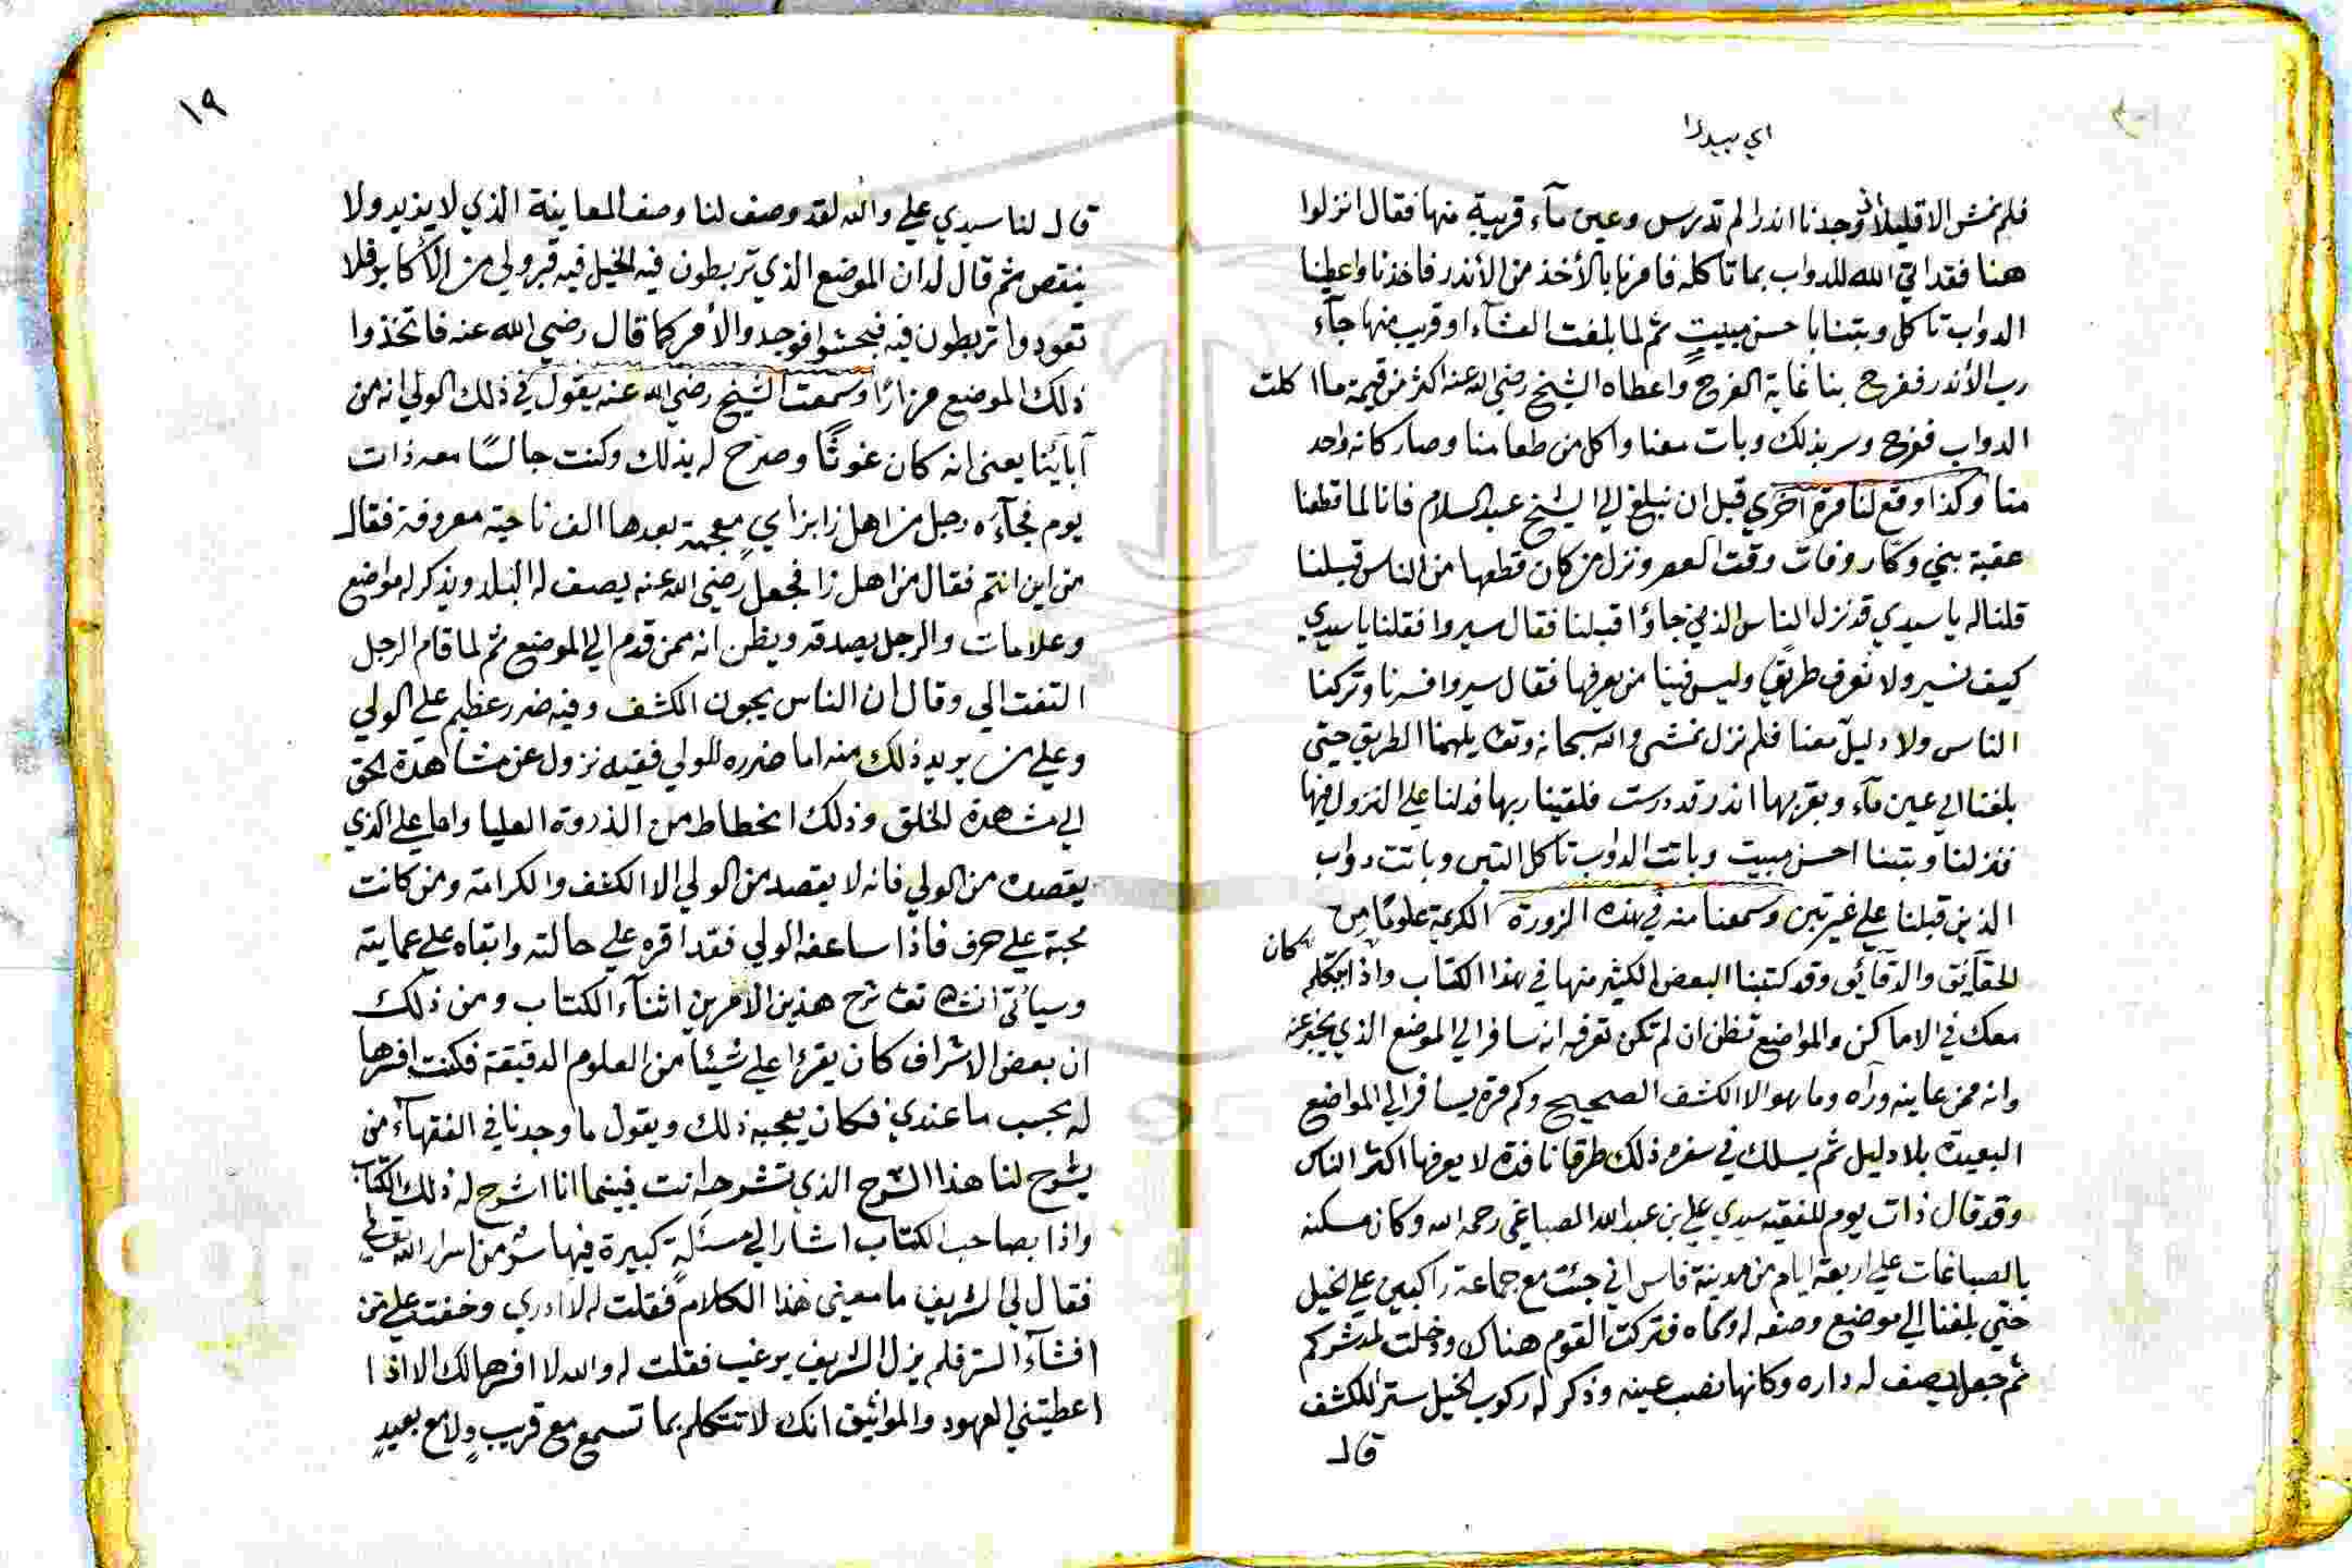 اي بيدرا
فلم نمش الا قليلا ووجدنا اندرا لم تدرس وعين مآء قريبة منها فقال انزلوا
هنا فقد اتى الله للدواب بما تاكله فامرنا بالأخذ من الأندر فاخذنا واعطينا
الدواب تاكل وبتنا باحسن مبيتٍ ثم لما بلغت العشآء او قريب منها جآء
رب الأندر ففرح بنا غاية الفرح واعطاه الشيخ رضي الله عنه اكثر من قيمة ما اكلت
الدواب ففرح وسر بذلك وبات معنا واكل من طعامنا وصار كانه واحد
منا وكذا وقع لنا مرة اخرى قبل ان نبلغ الي الشيخ عبد السلام فانا لما قطعنا
عقبة بني وكار وفات وقت العصر ونزل من كان قطعها من الناس قبلنا
قلنا له يا سيدي قد نزل الناس الذين جاؤا قبلنا فقال سيروا فقلنا يا سيدي
كيف نسير ولا نعرف طريقا وليس فينا من يعرفها فقال سيروا فسرنا وتركنا
الناس ولا دليل معنا فلم نزل نمشي والله سبحانه وتعا يلهمنا الطريق حتى
بلغنا الي عين مآء وبقربها اندر قد درست فلقينا ربها فدلنا علي النزول فيها
فنزلنا وبتنا احسن مبيت وباتت الدواب تاكل التبن وباتت دواب
الذين قبلنا علي غير تبن وسمعنا منه في هذه الزورة الكريمة علومًا من
الحقآئق والدقآئق وقد كتبنا البعض الكثير منها في هذا الكتاب واذا كان يتكلم
معك في الاماكن والمواضع تظن ان لم تكن تعرفه انه سافر الي الموضع الذي يخبر عنه
وانه ممن عاينه ورآه وما هو الا الكشف الصحيح وكم مرة يسافر الي المواضع
البعيدة بلا دليل ثم يسلك في سفره ذلك طرقا نافذة لا يعرفها اكثر الناس
وقد قال ذات يوم للفقيه سيدي علي بن عبد الله الصباغي رحمه الله وكان مسكنه
بالصباغات علي اربعة ايام من مدينة فاس اني جئت مع جماعة راكبين علي الخيل
حتي بلغنا الي موضع وصفه له وسماه فتركت القوم هناك ودخلت لمدشركم
ثم جعل يصف له داره وكانها نصب عينه وذكر له ركوب الخيل سترا للكشف
قال
١٩
قال لنا سيدي علي والله لقد وصف لنا وصف المعاينة الذي لا يزيد ولا
ينقص ثم قال له ان الموضع الذي تربطون فيه الخيل فيه قبر ولي من الأكابر فلا
تعودوا تربطون فيه فبحثوا فوجدوا الأمر كما قال رضي الله عنه فاتخذوا
ذلك الموضع مزارًا وسمعت الشيخ رضي الله عنه يقول في ذلك الولي انه من
آبآئنا يعني انه كان غوثًا وصرّح له بذلك وكنت جالسًا معه ذات
يوم فجآءه رجل من اهل زا بزاي معجمة بعدها الف ناحية معروفة فقال
من اين انتم فقال من اهل زا فجعل رضي الله عنه يصف له البلاد ويذكر له مواضع
وعلامات والرجل يصدقه ويظن انه ممن قدم الي الموضع ثم لما قام الرجل
التفت الي وقال ان الناس يحبون الكشف وفيه ضرر عظيم علي الولي
وعلي من يريد ذلك منه اما ضرره للولي ففيه نزول عن مشاهدة الحق
الي مشاهدة الخلق وذلك انحطاط من الذروة العليا واما علي الذي
يقصده من الولي فانه لا يقصد من الولي الا الكشف والكرامة ومن كانت
محبته علي حرف فاذا ساعفه الولي فقد اقره علي حالته وابقاه علي عمايته
وسيأتي انشاه تعا شرح هذين الامرين اثنآء الكتاب ومن ذلك
ان بعض الاشراف كان يقرا علي شيئا من العلوم الدقيقة فكنت افسرها
له بحسب ما عندي فكان يعجبه ذلك ويقول ما وجدنا في الفقهآء من
يشرح لنا هذا الشرح الذي تشرحه انت فبينما انا اشرح له ذلك الكتاب
واذا بصاحب الكتاب اشار الي مسئلةٍ كبيرة فيها سر من اسرار الله تعالي
فقال لي الشريف ما معنى هذا الكلام فقلت له لا ادري وخفت علي من
افشآء السر فلم يزل الشريف يرغب فقلت له والله لا افسرها لك الا اذا
اعطيتني العهود والمواثيق انك لا تتكلم بما تسمع مع قريبٍ ولا مع بعيدٍ